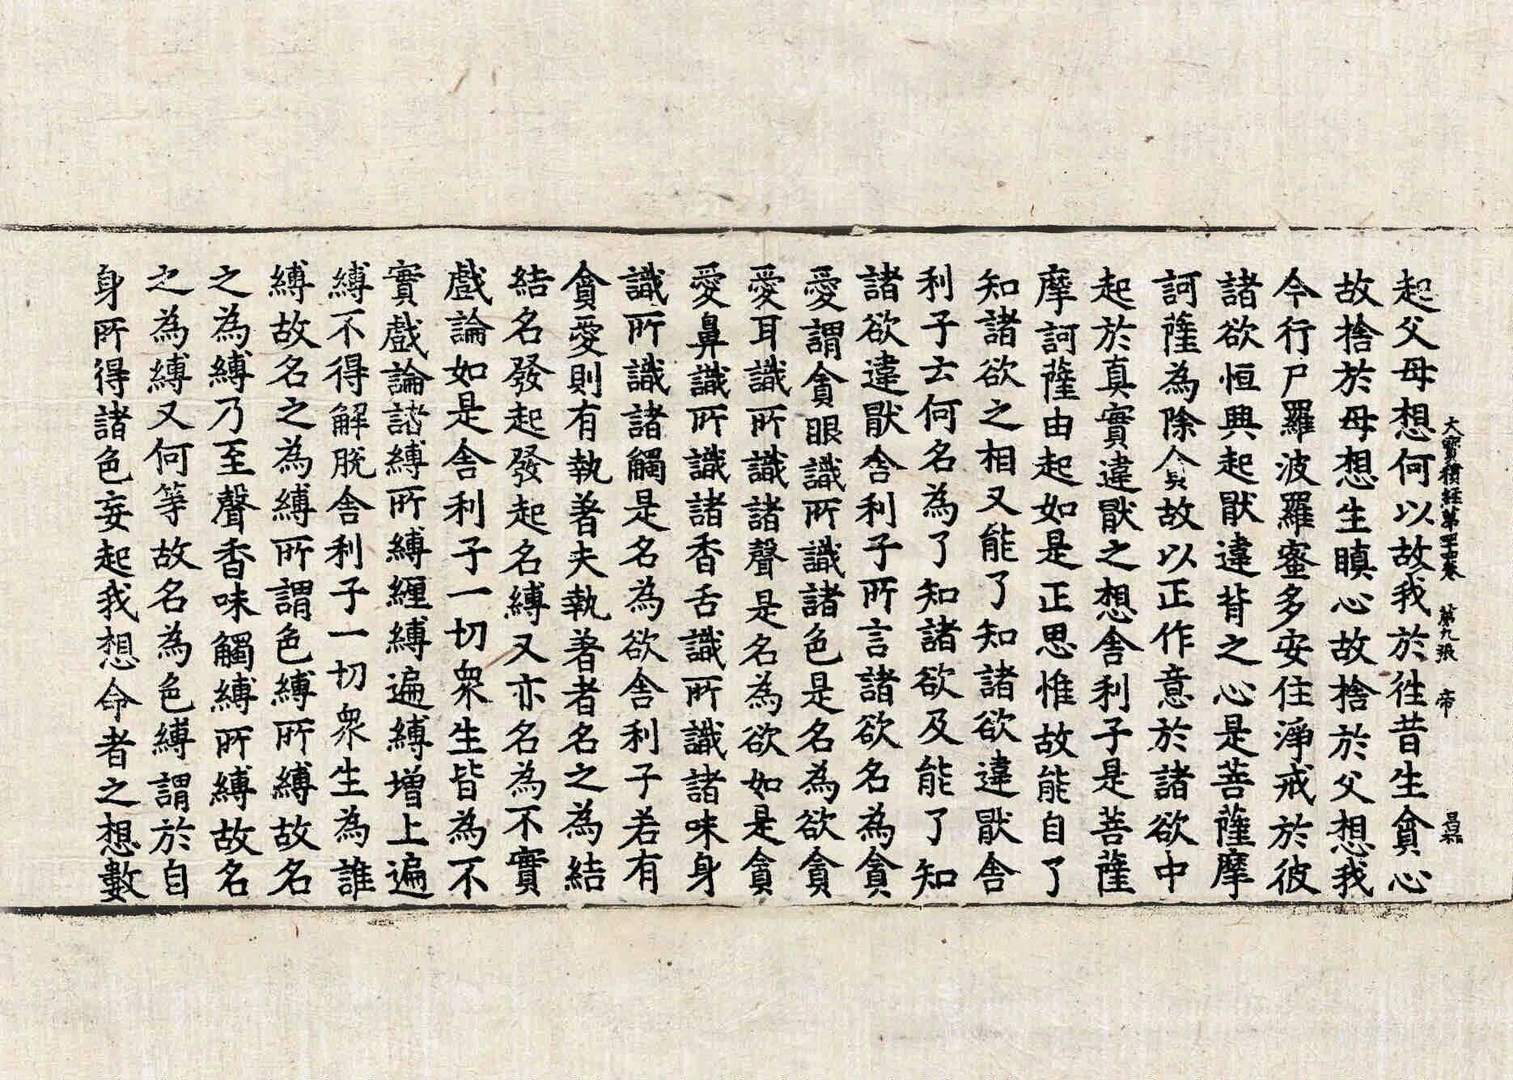 大寶積經第卷 第九張 帝
起父母想何以故我於往昔生貪心
故捨於母想生瞋心故捨於父想我
今行尸羅波羅蜜多安住淨戒於彼
諸欲恒興起猒違背之心是菩薩摩
訶薩為除貪故以正作意於諸欲中
起於真實違猒之想舍利子是菩薩
摩訶薩由起如是正思惟故能自了
知諸欲之相又能了知諸欲違猒舍
利子云何名為了知諸欲及能了知
諸欲違猒舍利子所言諸欲名為貪
愛謂貪眼識所識諸色是名為欲貪
愛耳識所識諸聲是名為欲如是貪
愛鼻識所識諸香舌識所識諸味身
識所識諸觸是名為欲舍利子若有
貪愛則有執著夫執著者名之為結
結名發起發起名縛又亦名為不實
戲論如是舍利子一切衆生皆為不
實戲論諸縛所縛纏縛遍縛增上遍
縛不得解脫舍利子一切衆生為誰
縛故名之為縛所謂色縛所縛故名
之為縛乃至聲香味觸縛所縛故名
之為縛又何等故名為色縛謂於自
身所得諸色妄起我想命者之想數